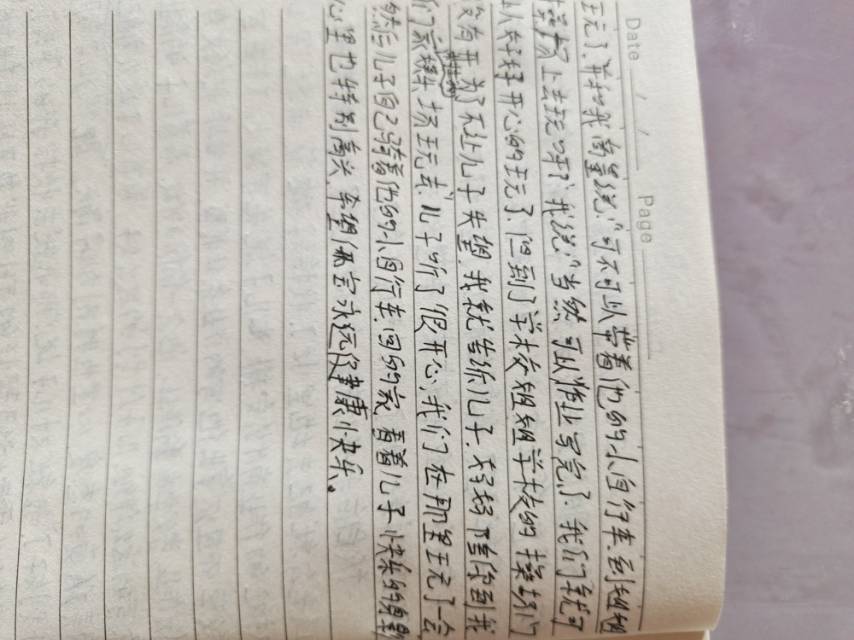 Date / / Page
玩了.并和我商量说:"可不可以带着他的小自行车.到姐姐
操场上去玩啊"我说:"当然可以作业写完了.我们就可
以好好开心的玩了.但到了学校姐姐学校的操场门
没有开.为了不让儿子失望.我就告诉儿子.妈妈陪你到我
们家 操场玩去"儿子听了很开心,我们在那里玩了一会
然后儿子自己骑着他的小自行车.回的家.看着儿子快乐的身影
心里也特别高兴.希望 宝永远健康快乐。